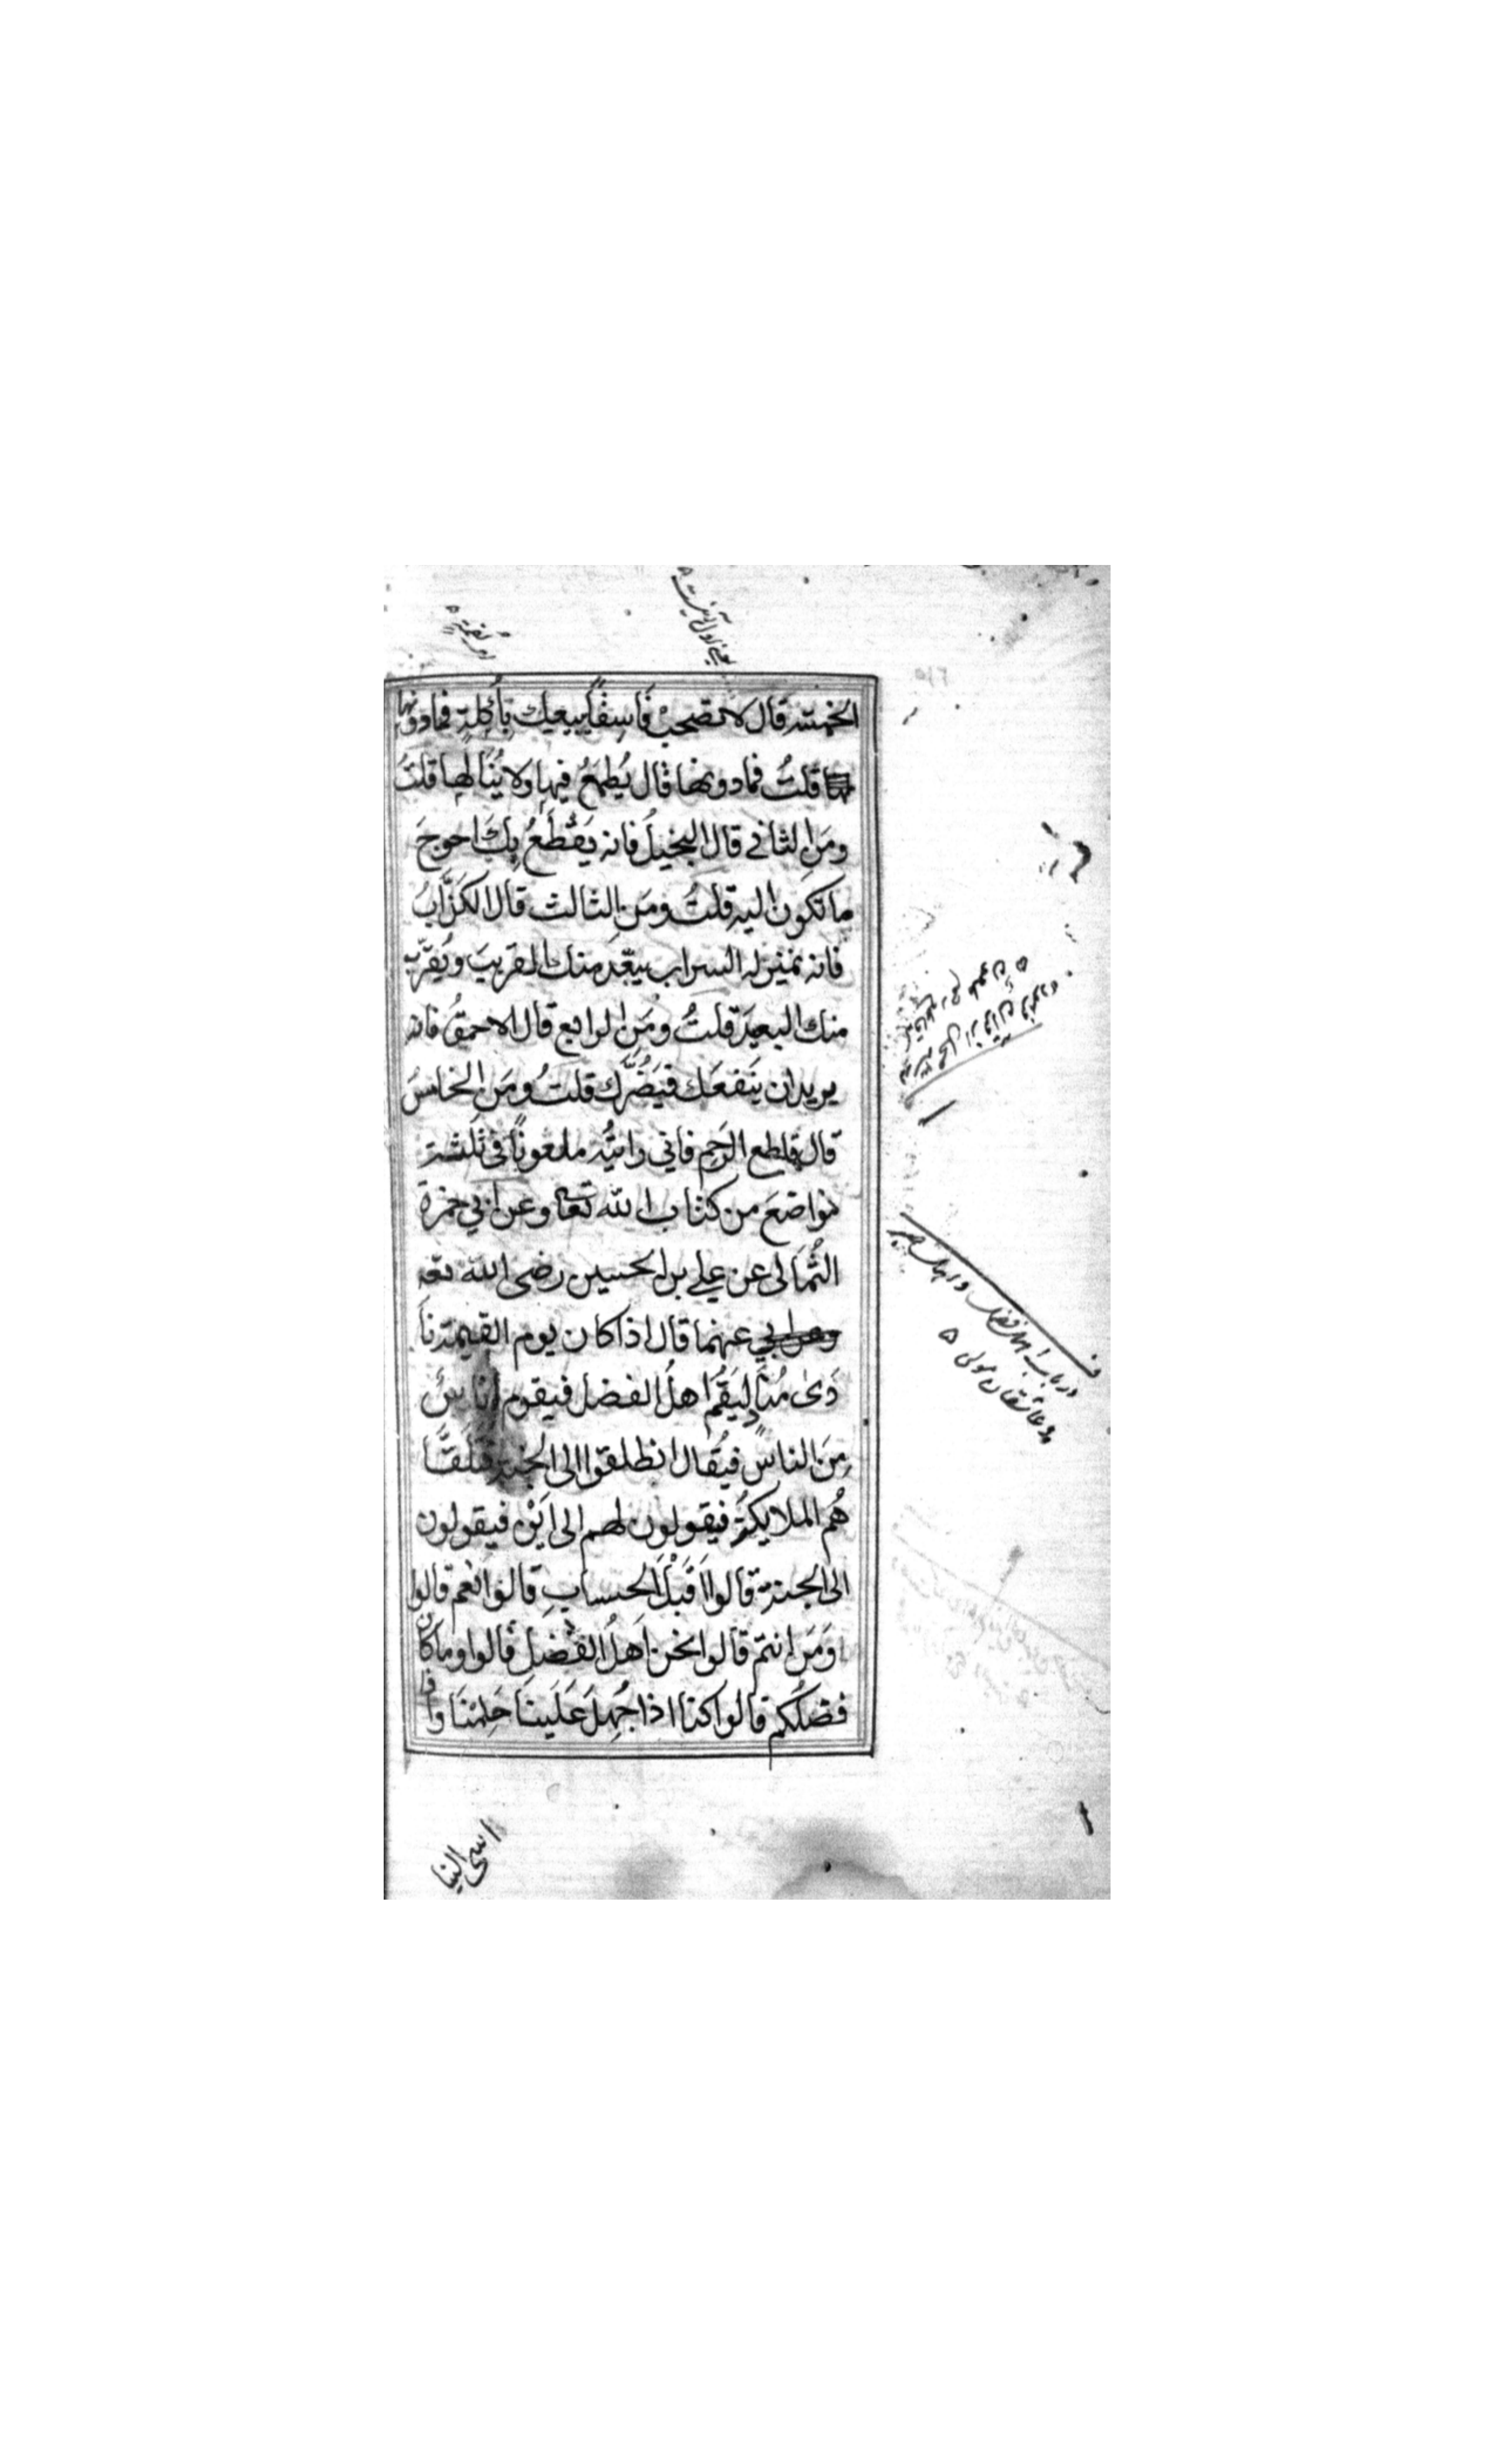 الخمسة قال لا تصحبْ فَاسِقًا يبيعك بِأُكْلةٍ فما دونها
قلتُ فما دونها قال يُطمَعُ فيها ولا يُنَالها قلتُ
ومَنِ الثاني قال البخيلُ فانه يَقْطَعُ بِكَ احوجَ
ما تكون اليه قلتُ ومَنِ الثالث قال الكذَّابُ
فانه بمنزلة السراب يبعّد منك القريبَ ويُقرّب
منك البعيدَ قلتُ ومَنِ الرابع قال الاحمقُ فانه
يريد ان يَنفعَك فيَضُرَّك قلتُ ومَنِ الخامسَ
قال قاطع الرَّحِم فاني رايتُه ملعونًا في ثلثة
مواضعَ من كتاب الله تعا وعن ابي حمزة
الثُّمَالي عن علي بن الحسين رضى الله تعه
عنهما قال اذا كان يوم القيمة نَا
دَىٰ مُنَادٍ لِيَقُم اهلُ الفضل فيقوم اناسٌ
مِنَ الناس فيُقال انطلقوا الى الجنة فتَلَقَّا
هُم الملايكةُ فيقولون لهم الى اَيْنَ فيقولون
الى الجنة قالوا اَقَبْلَ الحسابِ قالوا نعم قالوا
وَمَن انتم قالوا نحن اَهلُ الفَضلِ قالوا وما كان
فضلُكم قالوا كنا اذا جُهِلَ عَلَينَا حَلِمْنَا واذا
در باب اهل فضل و اهل صبر
و عاشقان مولى
اسى الينا